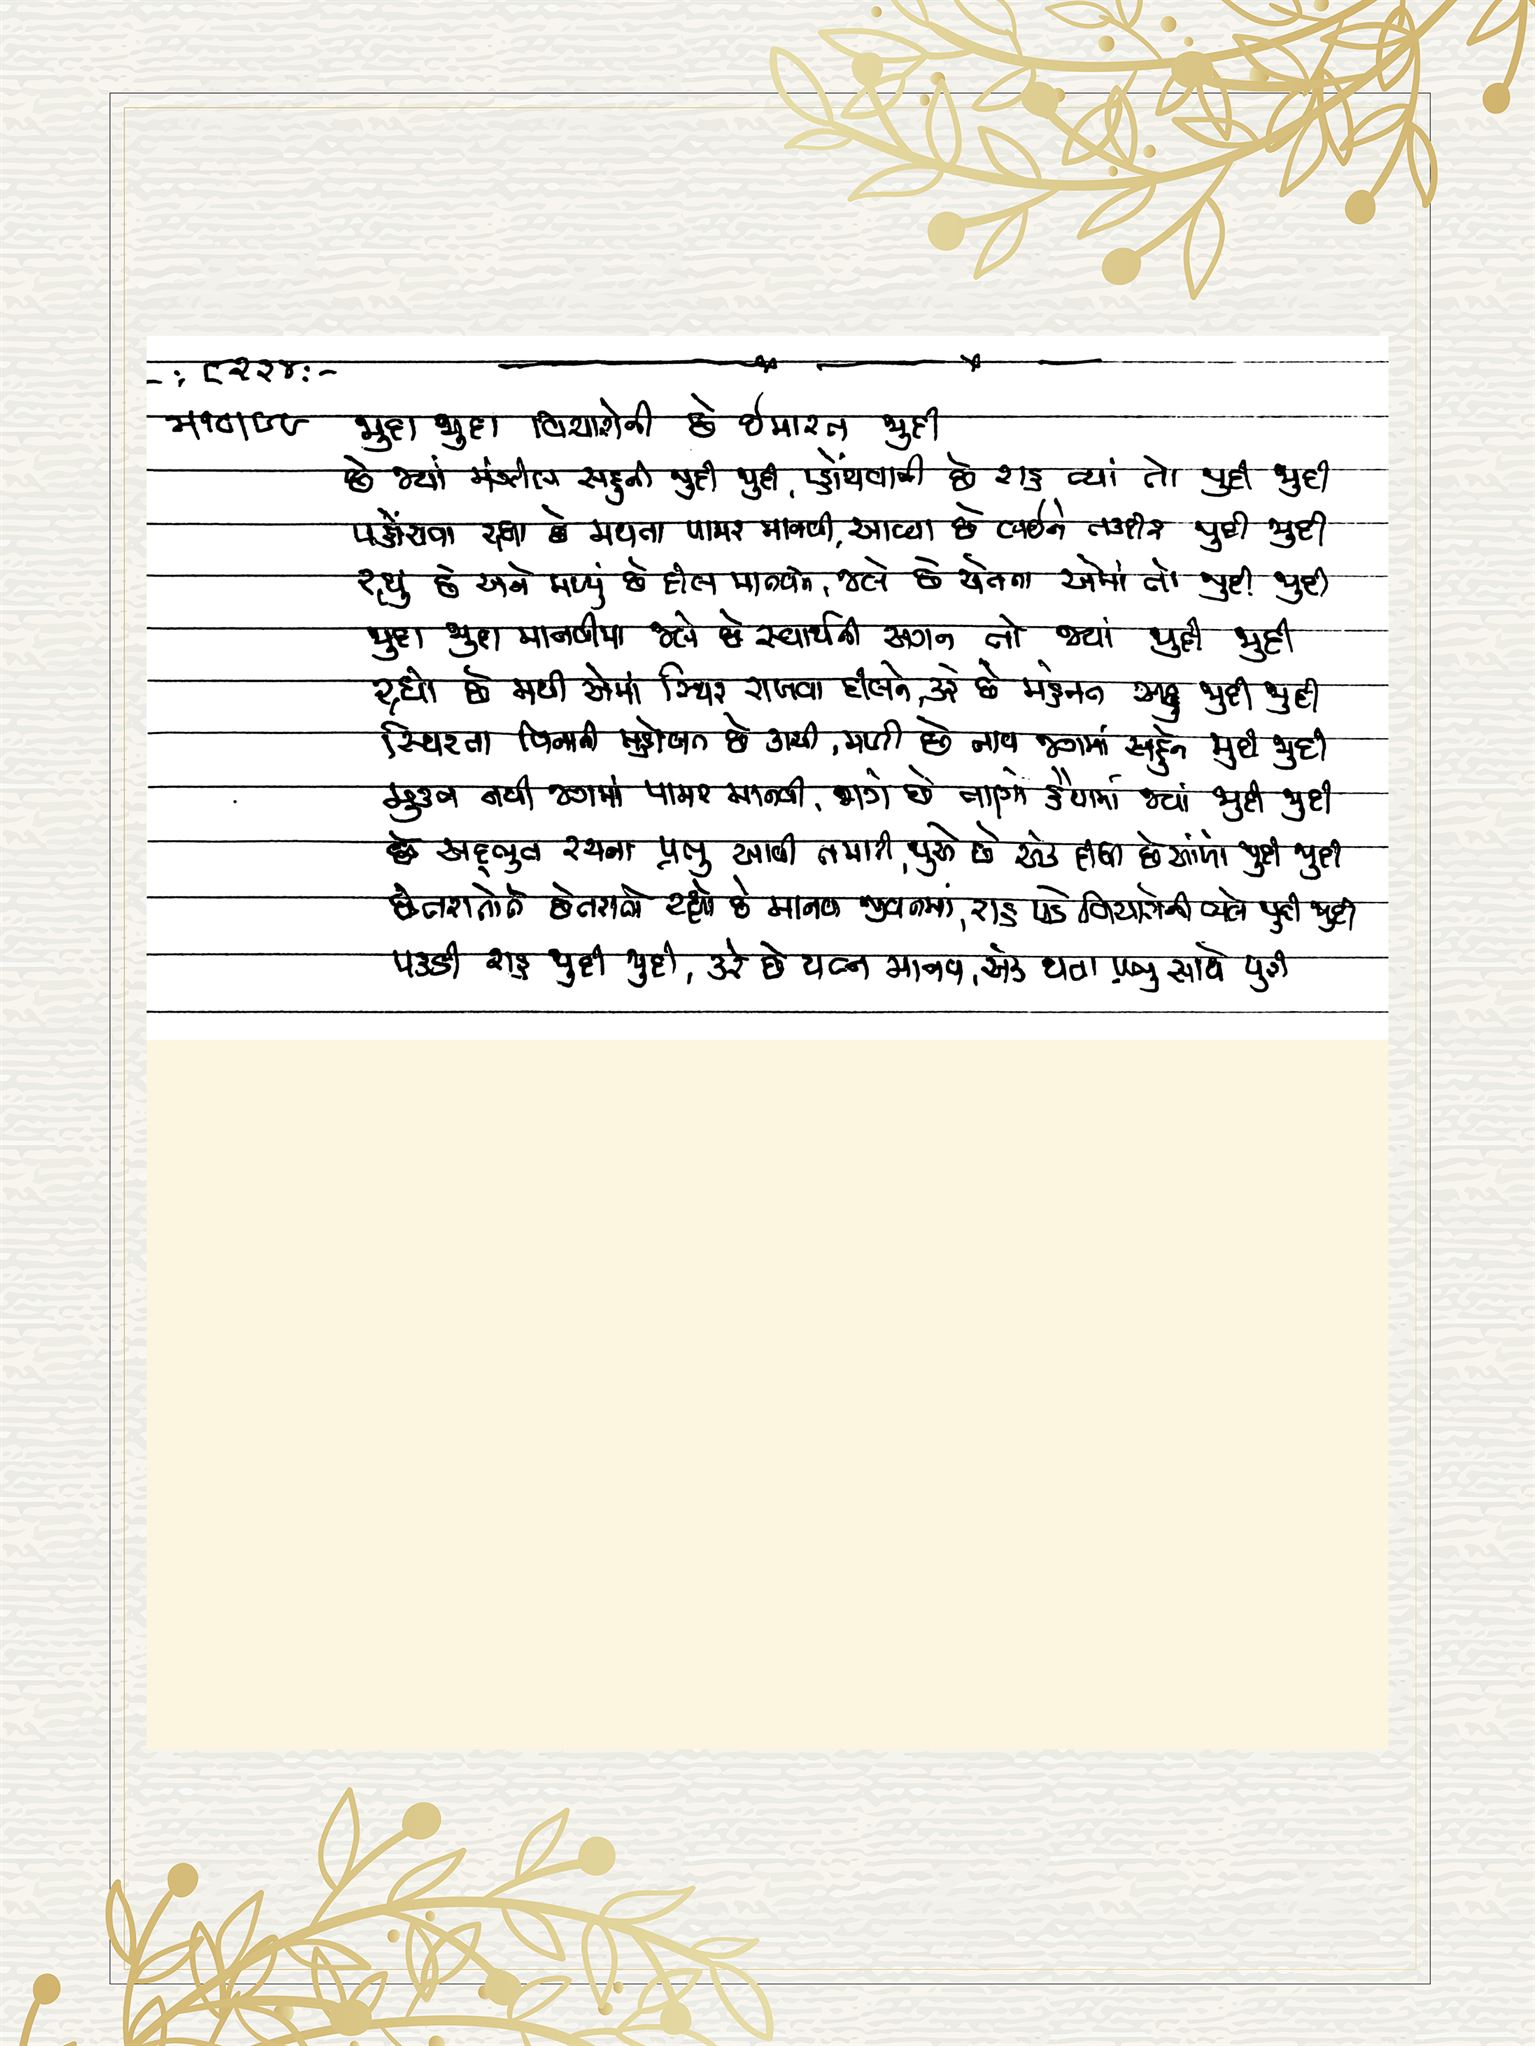 -: ૯૨૨૪:-
જુદા જુદા વિચારોની છે ઈમારત જુદી
છે જ્યાં મંઝીલ સહુની જુદી જુદી, પહોંચવાની છે રાહ ત્યાં તો જુદી જુદી
પહોંચવા રહ્યા છે મથતા પામર માનવી, આવ્યા છે લઈને તકદીર જુદી જુદી
રહ્યું છે અને મળ્યું છે દીલ માનવને, જલે છે ચેતના એમાં તો જુદી જુદી
જુદા જુદા માનવીમાં જલે છે સ્વાર્થની અગન તો જ્યાં જુદી જુદી
રહ્યો છે મથી એમાં સ્થિર રાખવા દીલને, કરે છે મહેનત સહુ જુદી જુદી
સ્થિરતા વિનાની મહોબત છે કાચી, મળી છે નાવ જગમાં સહુને જુદી જુદી
મુક્ત નથી જગમાં પામર માનવી, જાગે છે લાગણી હૈયામાં જ્યાં જુદી જુદી
છે અદ્ભુત રચના પ્રભુ આવી તમારી, જુએ છે એક દીલ છે આંખો જુદી જુદી
છેતરાતોને છેતરાતો રહ્યો છે માનવ જીવનમાં, રાહ પડે વિચારોની જ્યારે જુદી જુદી
પકડી રાહ જુદી જુદી, કરે છે યત્ન માનવ, એક થવા પ્રભુ સાથે પુરી